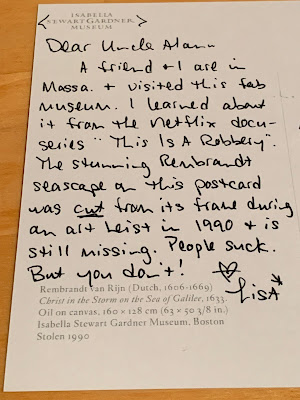 ISABELLA
STEWART GARDNER
MUSEUM
Dear Uncle Alann
A friend + I are in
Massa. + visited this fab
museum. I learned about
it from the Netflix docu-
series "This Is A Robbery".
The stunning Rembrandt
seascape on this postcard
was cut from its frame during
an art heist in 1990 + is
still missing. People suck.
But you don't!
LISA
Rembrandt van Rijn (Dutch, 1606-1669)
Christ in the Storm on the Sea of Galilee, 1633.
Oil on canvas, 160 × 128 cm (63 × 50 3/8 in.)
Isabella Stewart Gardner Museum, Boston
Stolen 1990